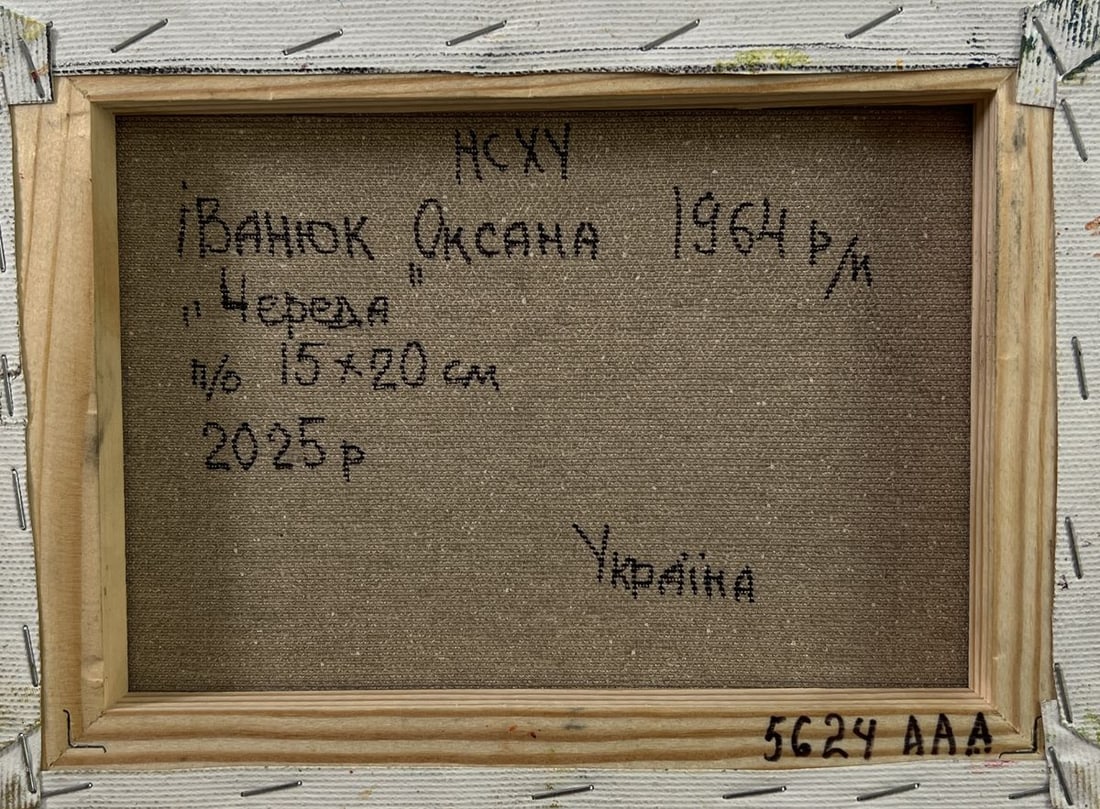 НСХУ
іВАНЮК ОКСАНА 1964 р/н
„Череда"
п/о 15×20 см
2025 р
Україна
5624 ААА